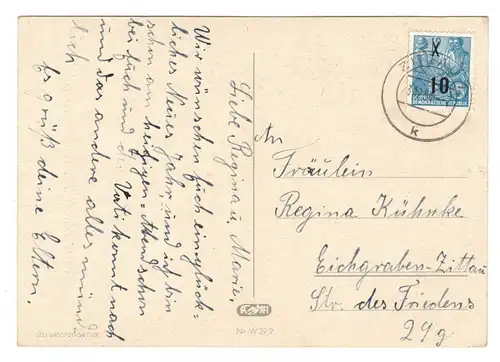 Liebe Regina u. Mario.
Wir wünschen Euch ein glück-
liches Neues Jahr, und ich bin
schon am heutigen Abend schon
bei Euch und der Vati kommt nach
und das andere alles münd
lich
Es grüßt deine Eltern.
ZITTAU
X
10
DEUTSCHE
DEMOKRATISCHE REPUBLIK
k
An
Fräulein
Regina Kühnke
Eichgraben-Zittau
Str. des Friedens
29g
Nr. W 272